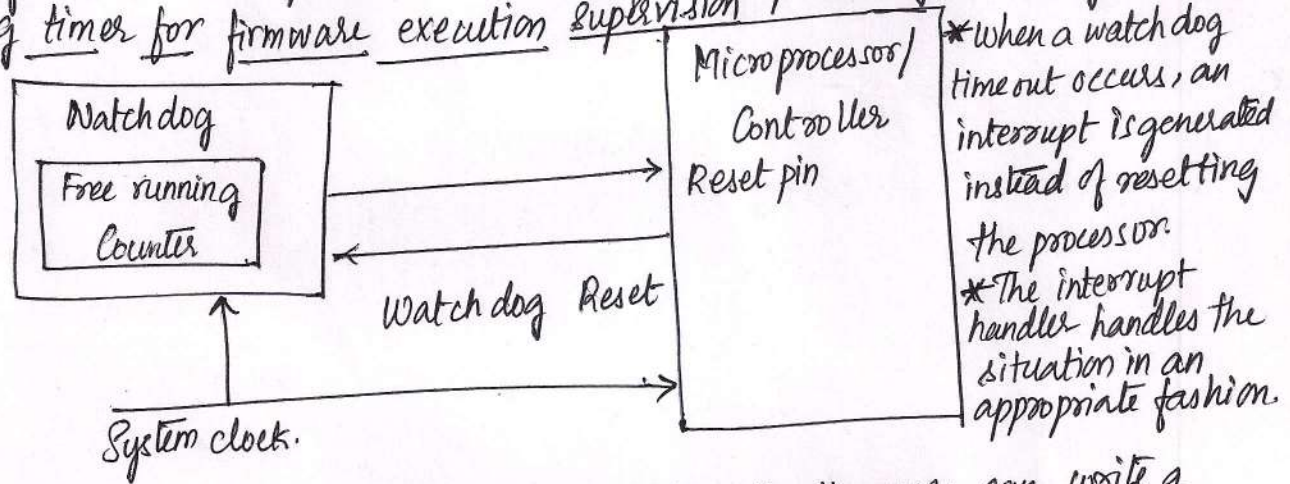 g timer for firmware execution supervision
Watchdog
Free running
Counter
Microprocessor/
Controller
Reset pin
Watchdog Reset
System clock.
*When a watchdog
timeout occurs, an
interrupt is generated
instead of resetting
the processor.
*The interrupt
handler handles the
situation in an
appropriate fashion.
can write a